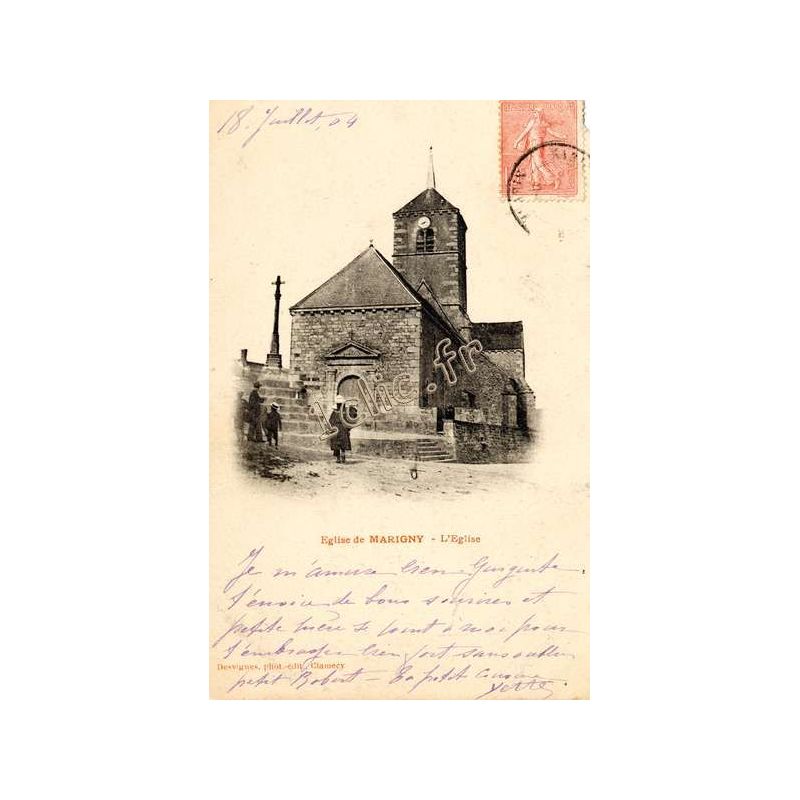 18. Juillet, 04
1clic.fr
Eglise de MARIGNY - L'Eglise
Je m'amuse bien
t'envoie de bons sourires et
petite mère se joint à moi pour
t'embrasser bien fort sans oublier
Desvignes, phot.-édit. Clamecy
petit Robert - Ta petite cousine